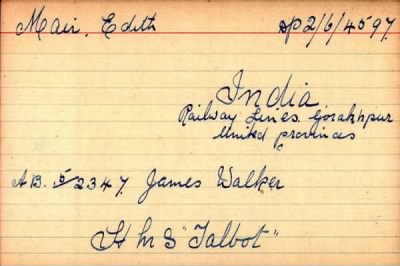 Mair, Edith SP2/6/4597
India
Railway Lines. Gorakhpur
United Provinces
AB. 52347 James Walker
H M S "Talbot"